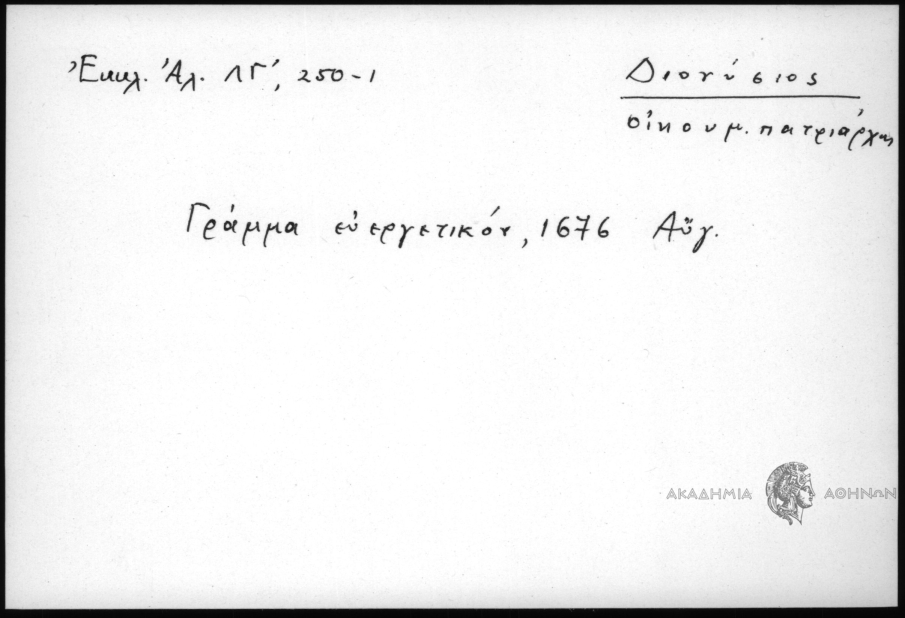 Ἐκκλ. Ἀλ. ΛΓ', 250-1
Διονύσιος
οἰκουμ. πατριάρχης
Γράμμα εὐεργετικόν, 1676 Αὔγ.
ΑΚΑΔΗΜΙΑ ΑΘΗΝΩΝ